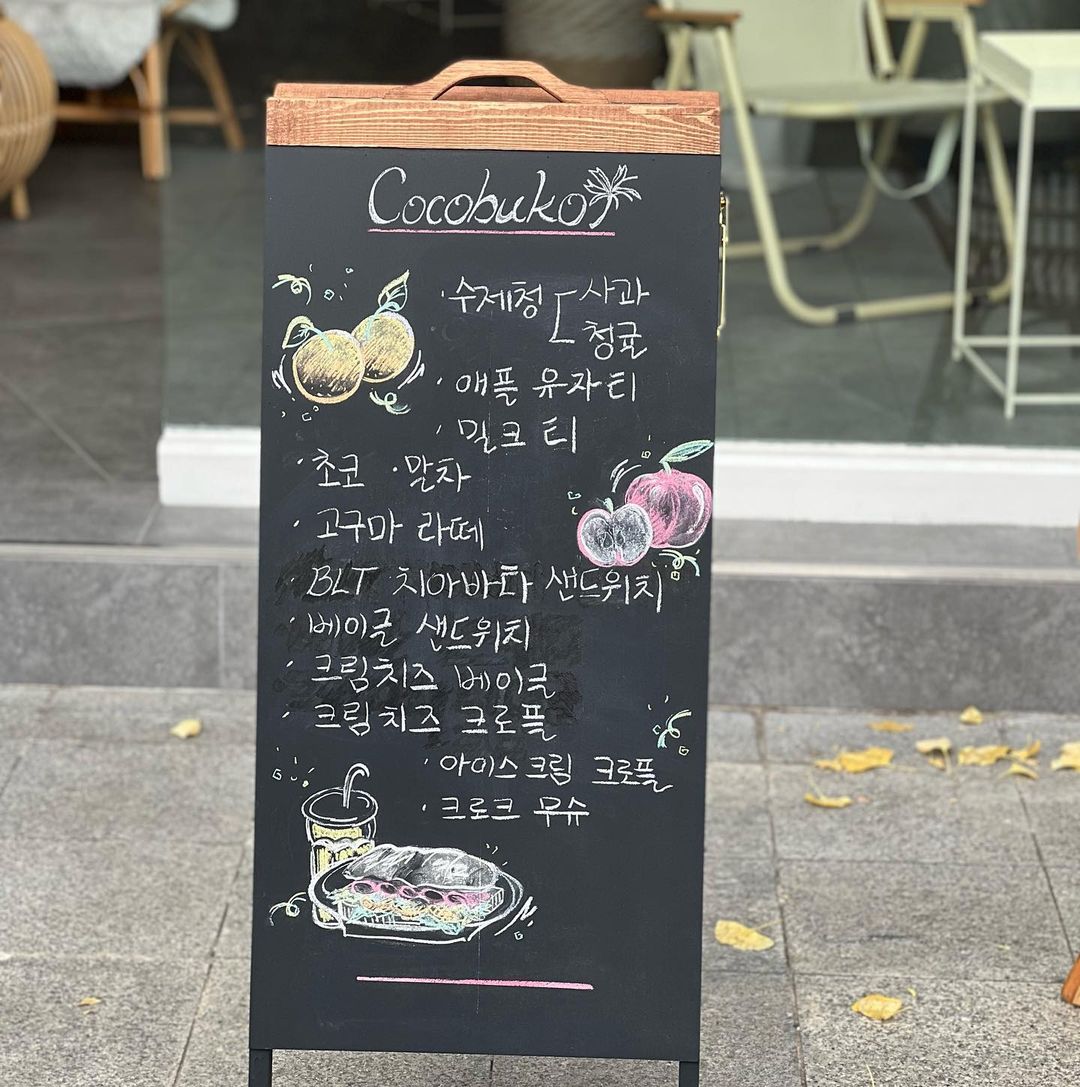 Cocobuko
· 수제청 [ 사과
청귤
· 애플 유자티
· 밀크 티
· 초코 · 말차
· 고구마 라떼
· BLT 치아바타 샌드위치
· 베이글 샌드위치
· 크림치즈 베이글
· 크림치즈 크로플
· 아이스크림 크로플
· 크로크 무슈